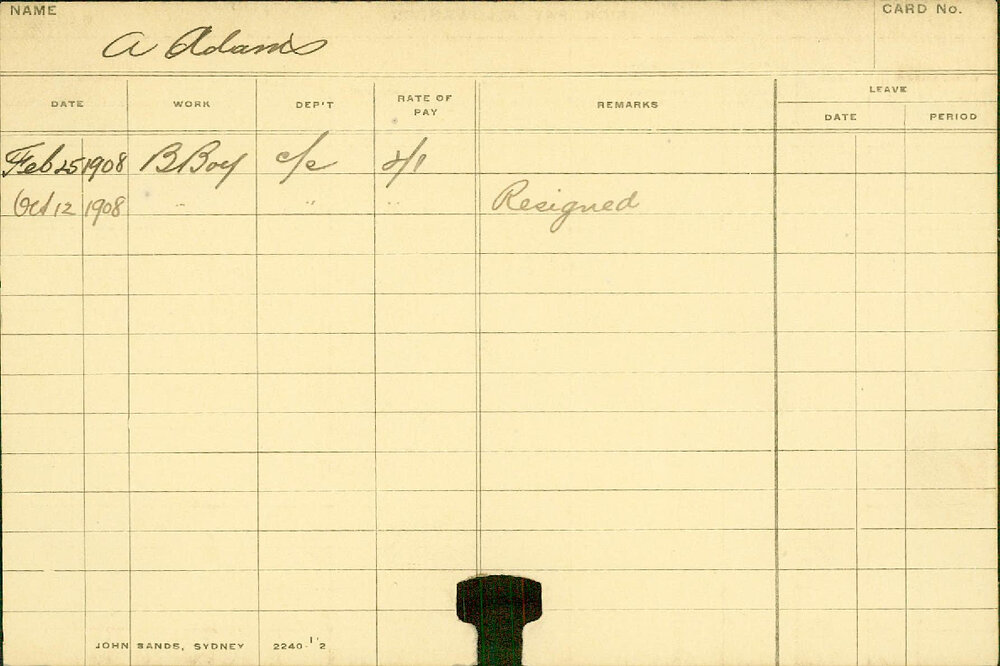 NAME CARD No.
A Adams
DATE WORK DEP'T RATE OF PAY REMARKS LEAVE
DATE PERIOD
Feb 25 1908 B Boy c/e 2/1
Oct 12 1908 " " " Resigned
JOHN SANDS, SYDNEY 2240-1'2